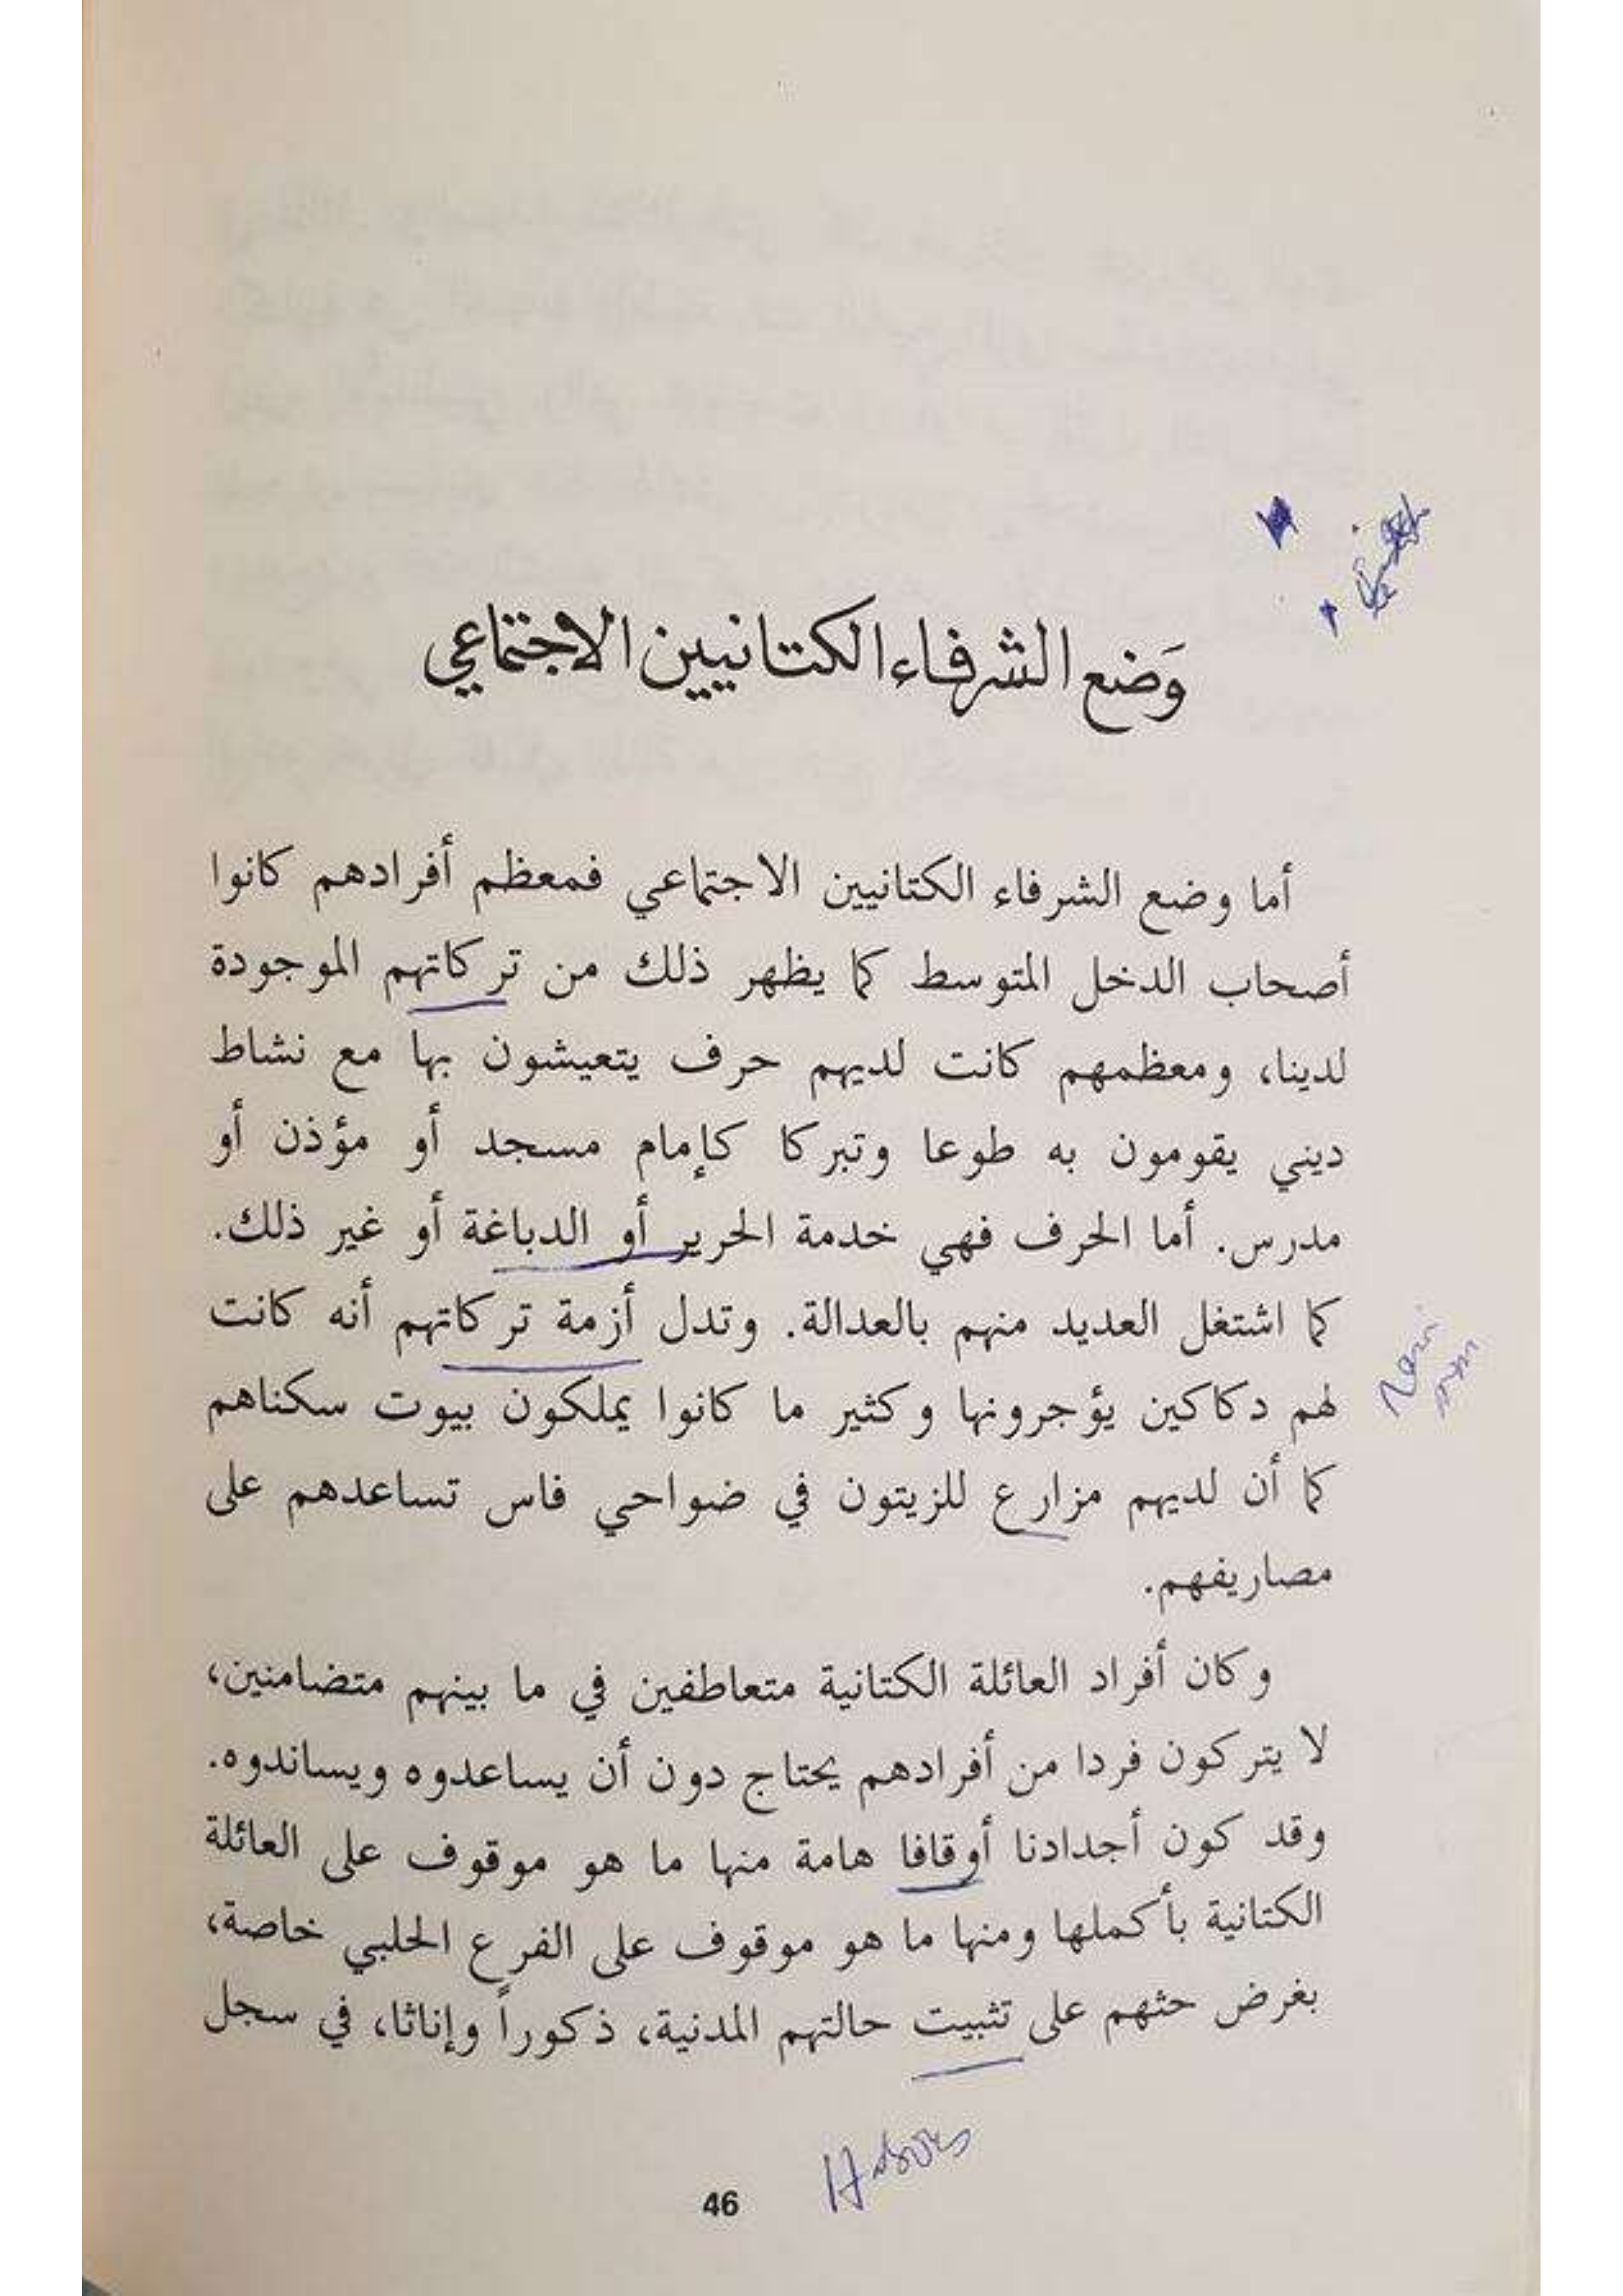 وَضع الشرفاء الكتانيين الاجتماعي
أما وضع الشرفاء الكتانيين الاجتماعي فمعظم أفرادهم كانوا
أصحاب الدخل المتوسط كما يظهر ذلك من تركاتهم الموجودة
لدينا، ومعظمهم كانت لديهم حرف يتعيشون بها مع نشاط
ديني يقومون به طوعا وتبركا كإمام مسجد أو مؤذن أو
مدرس. أما الحرف فهي خدمة الحرير أو الدباغة أو غير ذلك.
كما اشتغل العديد منهم بالعدالة. وتدل أزمة تركاتهم أنه كانت
لهم دكاكين يؤجرونها وكثير ما كانوا يملكون بيوت سكناهم
كما أن لديهم مزارع للزيتون في ضواحي فاس تساعدهم على
مصاريفهم.
وكان أفراد العائلة الكتانية متعاطفين في ما بينهم متضامنين،
لا يتركون فردا من أفرادهم يحتاج دون أن يساعدوه ويساندوه.
وقد كون أجدادنا أوقافا هامة منها ما هو موقوف على العائلة
الكتانية بأكملها ومنها ما هو موقوف على الفرع الحلبي خاصة،
بغرض حثهم على تثبيت حالتهم المدنية، ذكوراً وإناثا، في سجل
46